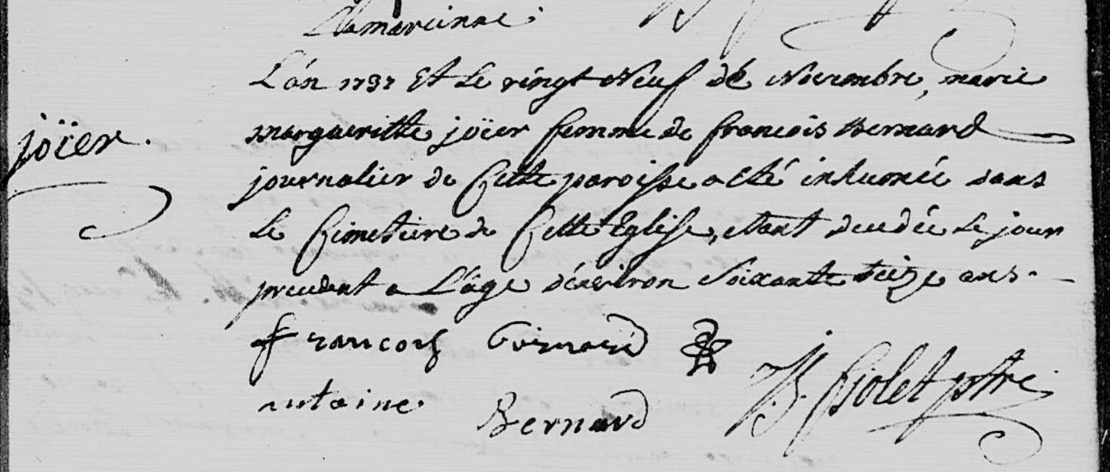 Lamarcinne.
L'an 1737 Et Le vingt Neuf de Novembre, marie
joïer.
margueritte joïer femme de francois Bernard
journalier de Cette paroisse a eté inhumée dans
Le Cimetiere de Cette Eglise, etant decedée Le jour
precedent a L'age d'environ Soixante seize ans.
francois
antoine Bernard
ptre